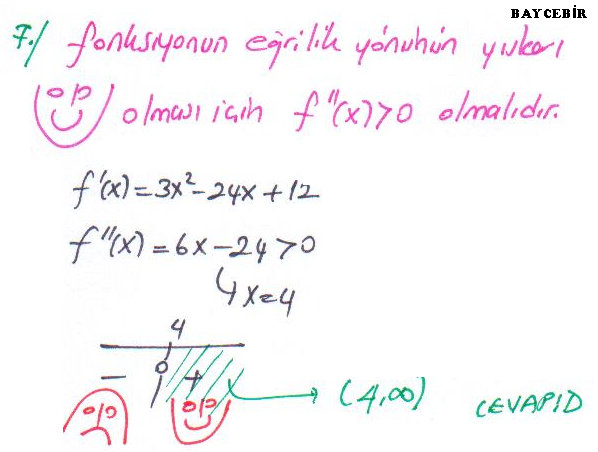 BAYCEBİR
7./ fonksiyonun eğrilik yönünün yukarı
olması için f''(x)>0 olmalıdır.
f'(x)=3x²-24x+12
f''(x)=6x-24>0
x=4
4
- 0 +
(4,∞) CEVAP D